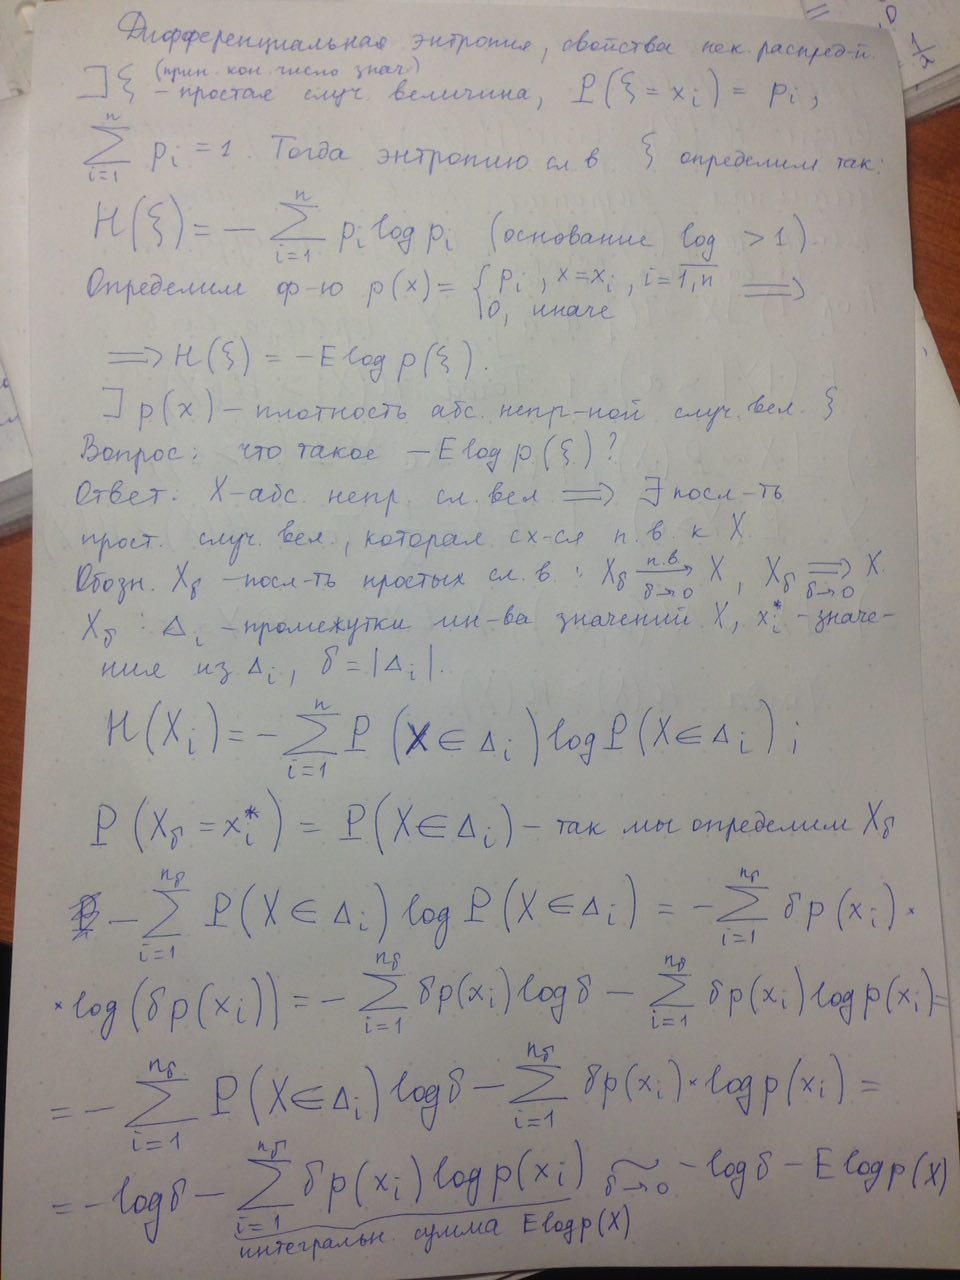 Дифференциальная энтропия, свойства нек. распред-й.
(прин. кон. число знач.)
∃ ξ – простая случ. величина, P(ξ = x_i) = p_i,
∑_{i=1}^{n} p_i = 1. Тогда энтропию сл. в ξ определим так:
H(ξ) = – ∑_{i=1}^{n} p_i log p_i (основание log > 1).
Определим ф-ю p(x) = { p_i, x = x_i, i = \overline{1,n} ; 0, иначе ⟹
⟹ H(ξ) = – E log p(ξ).
∃ p(x) – плотность абс. непр-ной случ. вел. ξ
Вопрос: что такое – E log p(ξ)?
Ответ: X – абс. непр. сл. вел ⟹ ∃ посл-ть
прост. случ. вел., которая сх-ся п. в. к X.
Обозн. X_δ – посл-ть простых сл. в.: X_δ →^{п.в.}_{δ→0} X, X_δ ⟹_{δ→0} X.
X_δ : Δ_i – промежутки мн-ва значений X, x_i^* – значе-
ния из Δ_i, δ = |Δ_i|.
H(X_i) = – ∑_{i=1}^{n} P(X ∈ Δ_i) log P(X ∈ Δ_i);
P(X_δ = x_i^*) = P(X ∈ Δ_i) – так мы определим X_δ
– ∑_{i=1}^{n_δ} P(X ∈ Δ_i) log P(X ∈ Δ_i) = – ∑_{i=1}^{n_δ} δp(x_i) ×
× log(δp(x_i)) = – ∑_{i=1}^{n_δ} δp(x_i) log δ – ∑_{i=1}^{n_δ} δp(x_i) log p(x_i) =
= – ∑_{i=1}^{n_δ} P(X ∈ Δ_i) log δ – ∑_{i=1}^{n_δ} δp(x_i) × log p(x_i) =
= – log δ – ∑_{i=1}^{n_δ} δp(x_i) log p(x_i) ~_{δ→0} – log δ – E log p(X)
интегральн. сумма E log p(X)